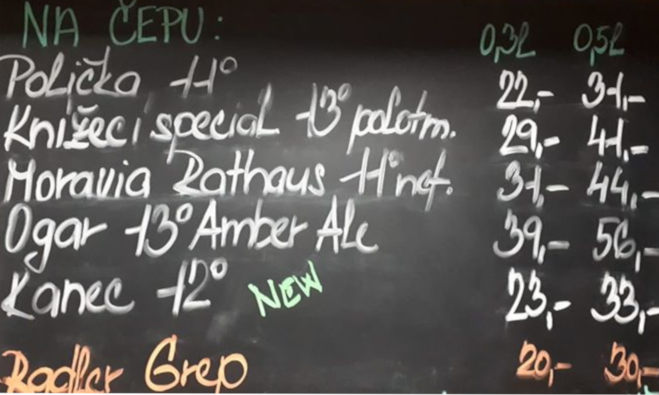 NA ČEPU: 0,3l 0,5l
Polička 11° 22,- 31,-
Knížecí special 13° polotm. 29,- 41,-
Moravia Rathaus 11° nef. 31,- 44,-
Ogar 13° Amber Ale 39,- 56,-
Kanec 12° NEW 23,- 33,-
Radler Grep 20,- 30,-